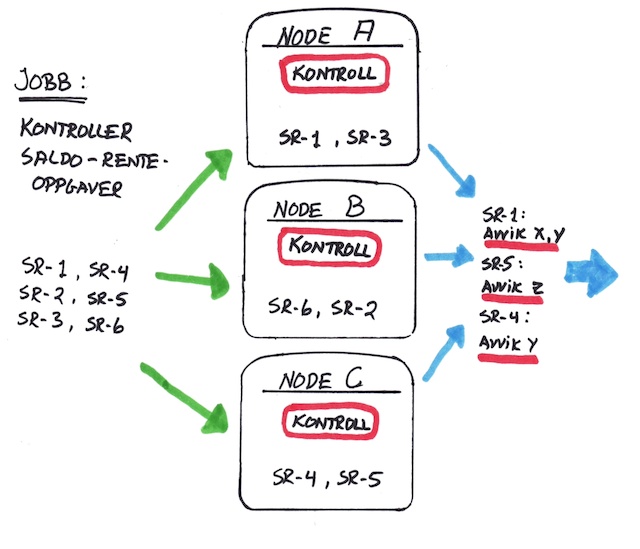 JOBB:
KONTROLLER
SALDO-RENTE-
OPPGAVER
SR-1, SR-4
SR-2, SR-5
SR-3, SR-6
NODE A
KONTROLL
SR-1, SR-3
NODE B
KONTROLL
SR-6, SR-2
NODE C
KONTROLL
SR-4, SR-5
SR-1:
AVVIK X,Y
SR-5:
AVVIK Z
SR-4:
AVVIK Y